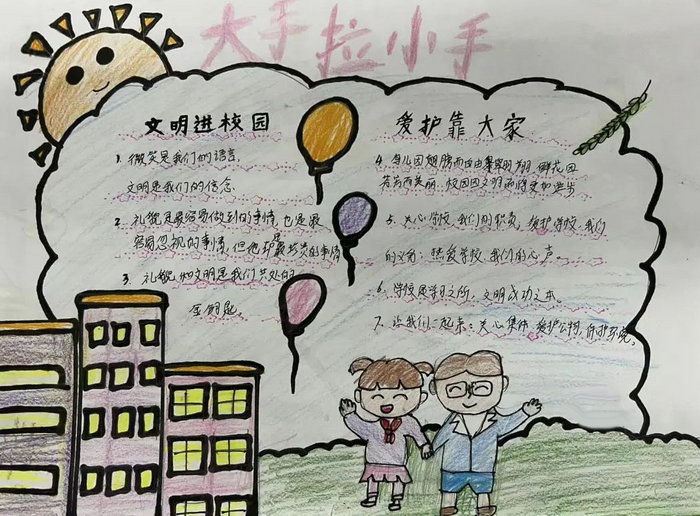 大手拉小手
文明进校园
1. 微笑是我们的语言,
文明是我们的信念
2. 礼貌是最容易做到的事情, 也是最
容易忽视的事情, 但他却是最珍贵的事情
3. 礼貌和文明是我们共处的
金钥匙。
爱护靠大家
4. 鸟儿因翅膀而自由翱翔, 鲜花因
芬芳而美丽, 校园因文明而将更加进步
5. 关心学校, 我们的职责, 爱护学校, 我们
的义务, 热爱学校, 我们的心声。
6. 学校是学习之所, 文明成功之本。
7. 让我们一起来: 关心集体, 爱护公物, 保护环境。